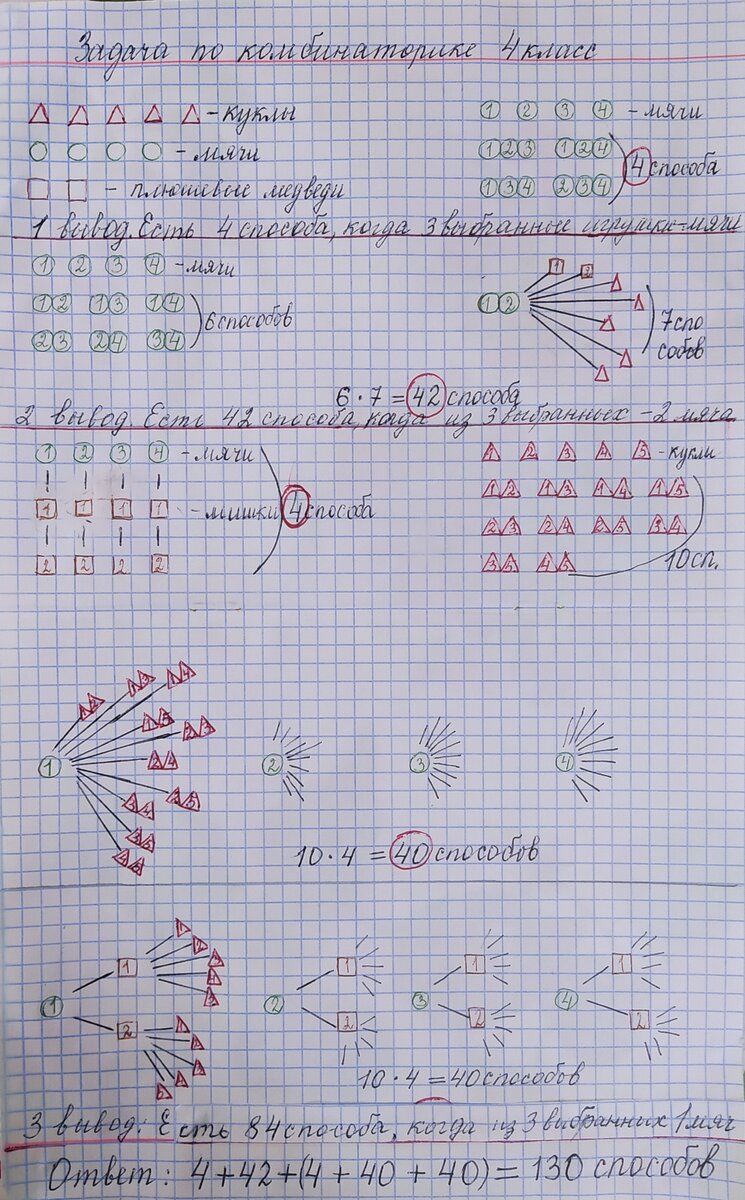 Задача по комбинаторике 4 класс
- куклы
- мячи
- плюшевые медведи
1 2 3 4 - мячи
123 124
134 234
4 способа
1 вывод. Есть 4 способа, когда 3 выбранные игрушки-мячи
1 2 3 4 - мячи
12 13 14
23 24 34
6 способов
12
1 2
7 спо
собов
6 · 7 = 42 способа
2 вывод. Есть 42 способа, когда из 3 выбранных - 2 мяча
1 2 3 4 - мячи
1 1 1 1 - мишки
2 2 2 2
4 способа
1 2 3 4 5 - куклы
12 13 14 15
23 24 25 34
35 45
10 сп.
1
12 13 14
15 23
24
34 25
35
45
2 3 4
10 · 4 = 40 способов
1
1 1 2 3 4 5
2 1 2 3 4 5
2 1 2
3 1 2
4 1 2
10 · 4 = 40 способов
3 вывод: Есть 84 способа, когда из 3 выбранных 1 мяч
Ответ: 4 + 42 + (4 + 40 + 40) = 130 способов